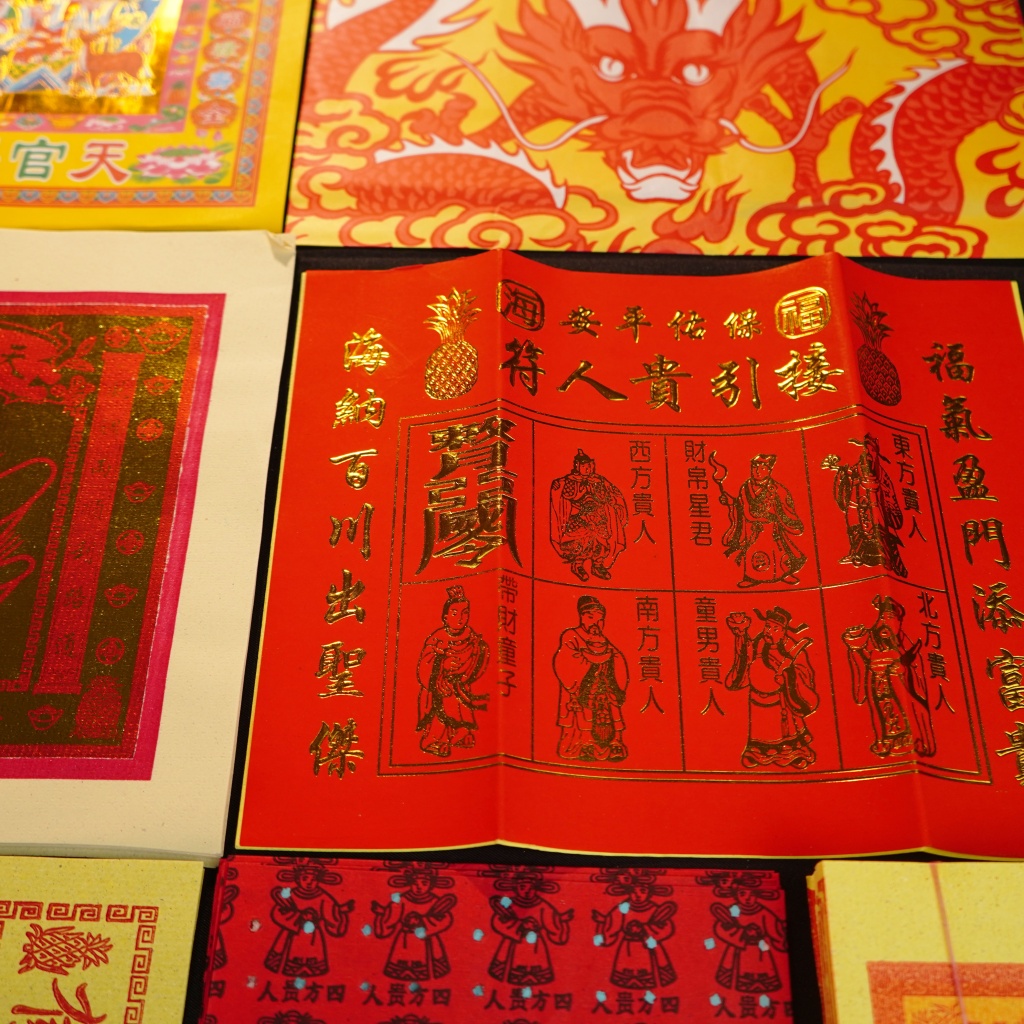 天官
福保佑平安海
接引貴人符
福氣盈門添富貴
東方貴人
財帛星君
西方貴人
北方貴人
童男貴人
南方貴人
帶財童子
海納百川出聖傑
四方貴人
四方貴人
四方貴人
四方貴人
四方貴人